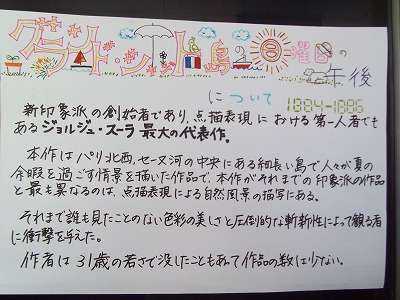 グランド・ジャット島の日曜日の
午後
について 1884-1886
新印象派の創始者であり、点描表現における第一人者でも
あるジョルジュ・スーラ最大の代表作。
本作はパリ北西、セーヌ河の中央にある細長い島で人々が夏の
余暇を過ごす情景を描いた作品で、本作がそれまでの印象派の作品
と最も異なるのは、点描表現による自然風景の描写にある。
それまで誰も見たことのない色彩の美しさと圧倒的な斬新性によって観る者
に衝撃を与えた。
作者は31歳の若さで没したこともあって作品の数は少ない。